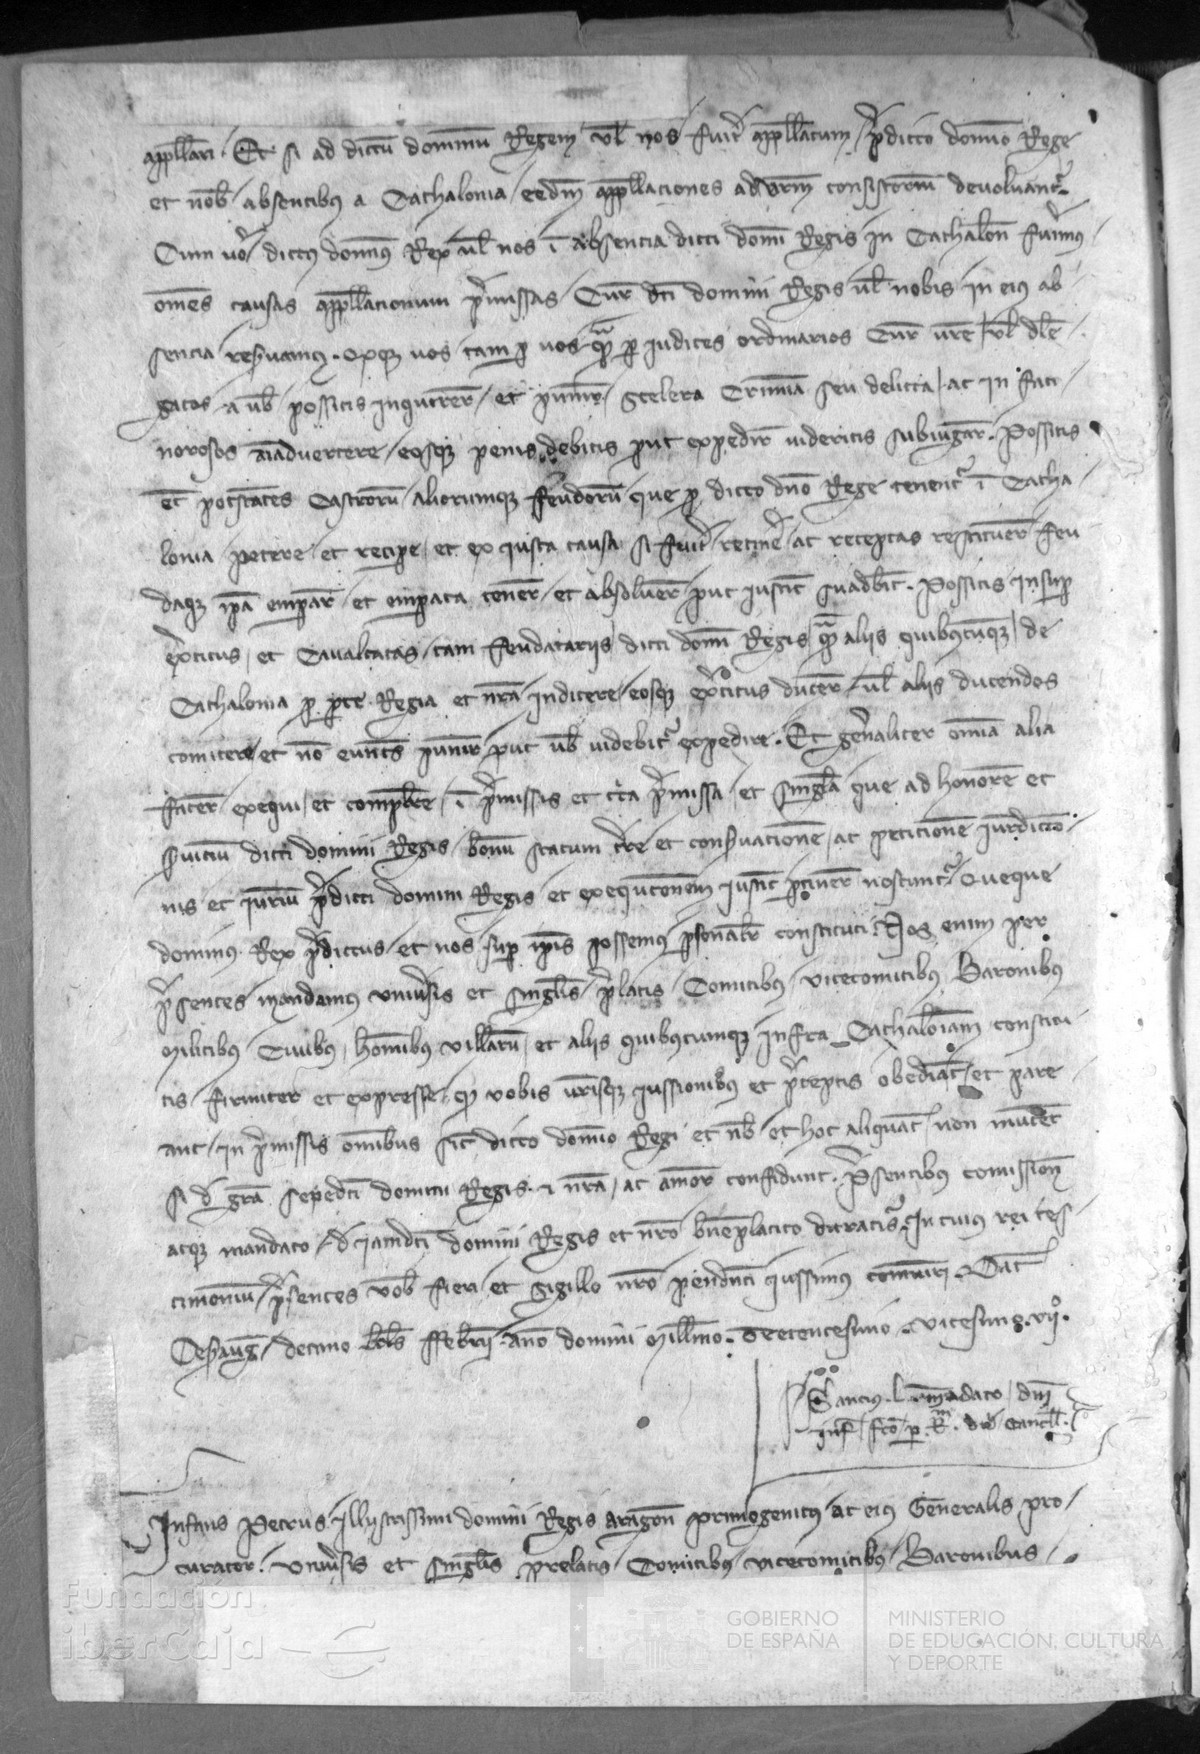 appellari. Et si ad dictū dominū Regem vl nos fuit appellatum / predicto domino Rege
et nob absentibus a Cathalonia / eedm appellaciones ad vrm consistorium devolvantr
Cum vo dictus dominus Rex vl nos ī absencia dicti domini Regis in Cathalon fuimus
omēs causas appellacionum premissas / Cur dcti domini Regis vl nobis in eius ab
sencia reservamus. vos tam per vos quam per judices ordinarios Cur vre / vl dele
gatos a vob possitis inqurer / et punir / Scelera Crimina seu delicta / ac in faci
norosos aīadvertere / eosque penis debitis put expedir videritis subiugar. Possitis
et potestates Castrorū / aliorumque feudorū que pro dicto dno Rege tenentr ī Catha
lonia petere et recipe / et ex justa causa si fuit retinere / ac receptas restituer feu
daque ipa empar / et emparata tener / et absolver put justic suadbit. Possitis insup
excitus / et Cavalcatas / tam feudatariis dicti domni Regis / quam aliis quibuscumque / de
Cathalonia pro parte Regia et nra indicere / eosque excitus ducer / vl aliis ducendos
comitere / et nō eunts punir put vob videbitr expedire. Et generaliter omīa alia
facer exequi / et complere / ī premissis et circa premissa / et singula que ad honorē et
servicium dicti domini Regis / bonū statum tre et conservacionē / ac peticionē iurisdictio
nis et iuriū predicti domini Regis et exequcionem justic ptiner noscuntr. Queque
dominus Rex predictus / et nos sup ipis possemus personalr constituti. Nos enim per
presentes mandamus universis et singulis / prelatis / Comitibus / vicecomitibus Baronibus
Militibus Civibus / hominibus villarū / et aliis quibuscumque infra Cathaloniam constitu
tis firmiter et expresse / qd vobis vrisque jussionibus et preceptis obediāt / et pare
ant / in premissis omibus sicut dicto domino Regi et nob et hoc aliquatenus non mutent
si de gra sepedcti domini Regis et nra / ac amor confidunt. presentibus comission
atque mandato / de jamdcti domini Regis et nro beneplacito duraturis. In cuius rei tes
timonium / presentes vob fieri et sigillo nro pendenti jussimus comuniri. Dat
Cesaraug / decimo kls Febrii anno domini Millmo. Trecentesimo. vicesimo. vijo.
Sancius. l. mandato / dmi
Inf / fco / p. R. Cancell.
Infans Petrus. Illustrissimi domini Regis aragon primogenitus ac eius Generalis pro
curator. universis et singulis prelatis / Comitibus vicecomitibus / Baronibus
Fundación
iberCaja
GOBIERNO
DE ESPAÑA
MINISTERIO
DE EDUCACIÓN, CULTURA
Y DEPORTE